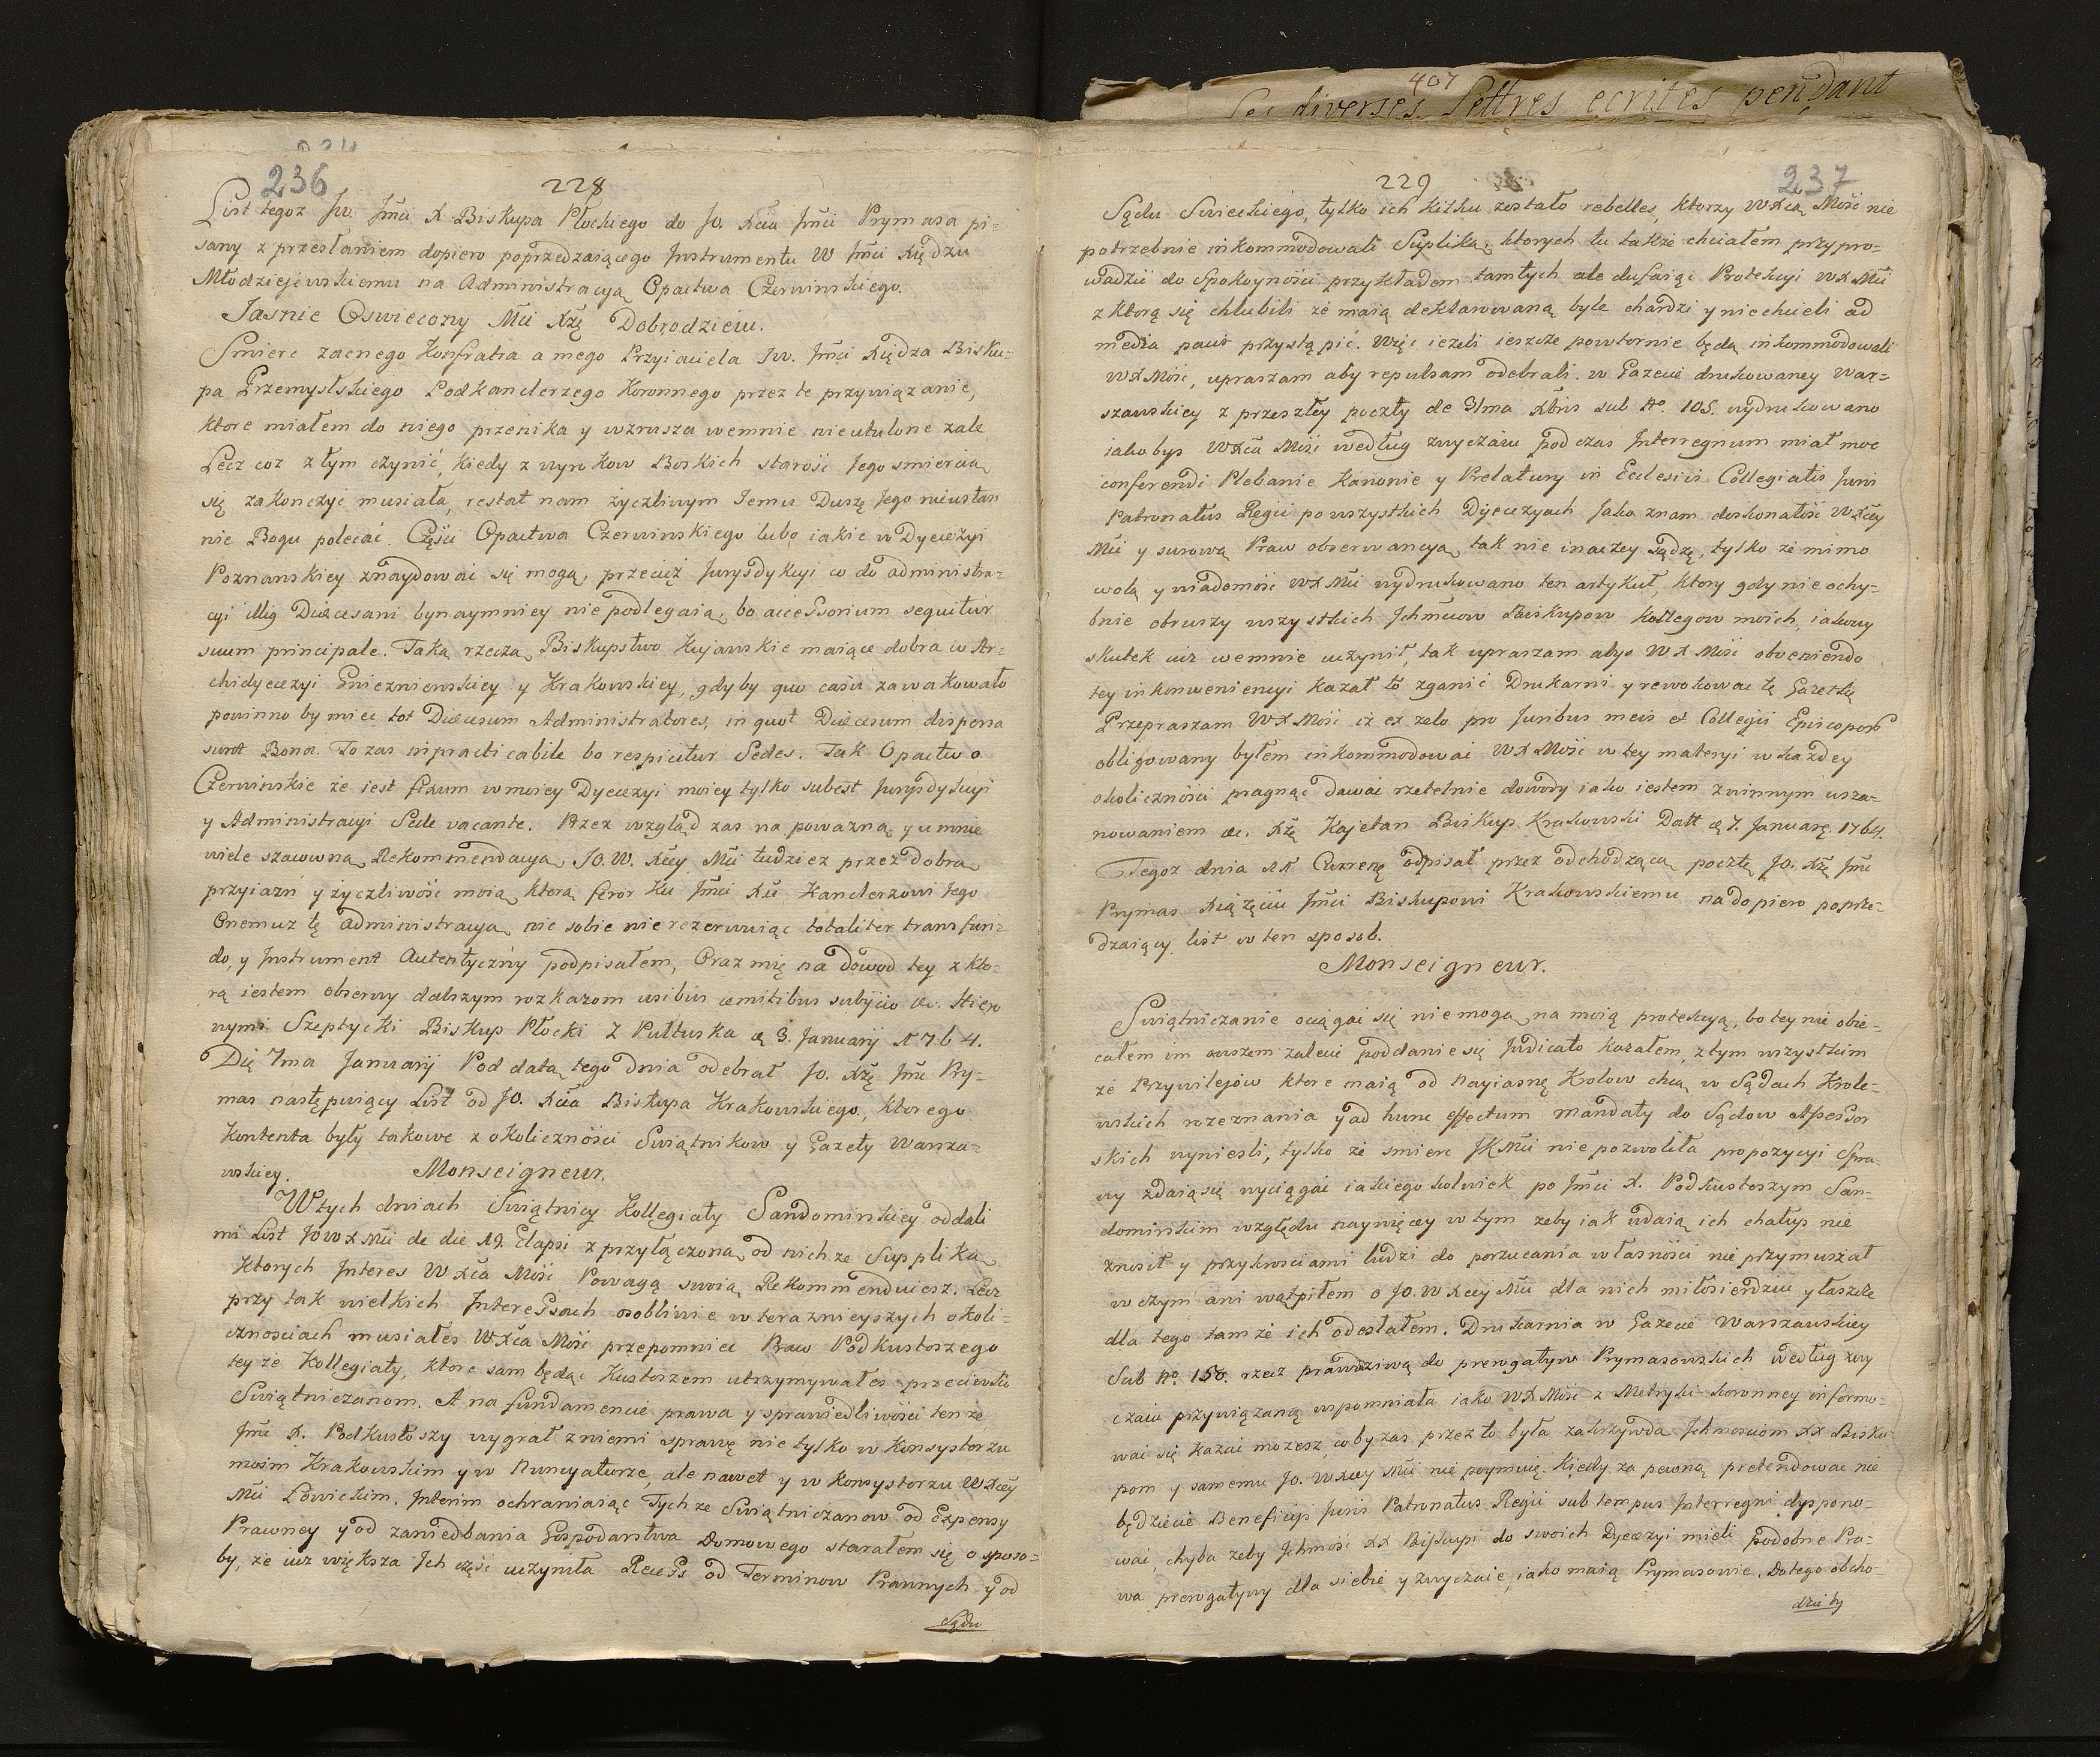 407
Les diverses Lettres ecrites pendant
236
228
List tegoz Jw. Jmći X Biskupa Płockiego do Jo. Xcia Jmći Prymasa pi-
sany z przesłaniem dopiero poprzedzaiącego Instrumentu W Jmći Xiędzu
Młodziejewskiemu na Administracyą Opactwa Czerwinskiego.
Jasnie Oswiecony Mći Xżę Dobrodzieiu.
Smierc zacnego Konfratra a mego Przyiaciela Jw. Jmći Xiędza Bisku-
pa Przemyslskiego Podkanclerzego Koronnego przez te przywiązanie,
ktore miałem do niego przenika y wzrusza wemnie nieutulone zale
Lecz coz z tym czynić, kiedy z wyrokow Boskich starość Jego smiercią
się zakonczyć musiała, restat nam życzliwym Jemu Duszę Jego nieustan
nie Bogu polecać. Części Opactwa Czerwinskiego lubo iakie w Dyecezyi
Poznanskiey znaydować się mogą, przecież Jurysdykcyi co do administra-
cyi Dioecesani bynaymniey nie podlegaią, bo accessorium sequitur
suum principale. Taką rzeczą Biskupstwo Kujawskie maiące dobra w Ar-
chidyecezyi Gnieznienskiey y Krakowskiey, gdyby quo casu zawakowało
powinno by miec tot Dioecesum Administratores, in quot Dioecesum dispersa
sunt Bona. To zas inpracticabile bo respicitur Sedes. Tak Opactwo
Czerwinskie że iest fixum w moiey Dyecezyi moiey tylko subest Jurysdykcyi
y Administracyi Sede vacante. Przez wzgląd zas na powazną y u mnie
wiele szacowną Rekommendacyą JO. W. Xcey Mći tudziez przez dobrą
przyiazń y życzliwość moią ktorą feror ku Jmći Xu Kanclerzowi Jego
Onemuz tę administracyą nic sobie nie rezerwuiąc totaliter transfun-
do, y Instrument Autentyczny podpisałem, Oraz mię na dowod tey z kto-
rą iestem obserwy dalszym rozkazom usibus subijcio &c. Hiero
nymi Szeptycki Biskup Płocki z Pułtuska d 3. Januarij 1764.
Die 7ma Januarij Pod datą tego dnia odebrał Jo. Xżę Jmć Pry-
mas następuiący List od JO. Xcia Biskupa Krakowskiego, ktorego
Kontenta były takowe z okoliczności Swiątnikow y Gazety Warsza-
wskiey. Monseigneur.
W tych dniach Swiątnicy Kollegiaty Sandomirskiey oddali
mi List JO W X Mći de die 19. Elapsi z przyłączoną od nich ze Suppliką
Ktorych Interes W Xca Mość Powagą swoią Rekommenduiesz. Lecz
przy tak wielkich Interessach osobliwie w teraznieyszych okoli-
cznosciach musiałes WXca Mość przepomniec Praw Podkustoszego
tey że Kollegiaty, ktore sam będąc Kustoszem utrzymywałes przeciwko
Swiątniczanom. A na fundamencie prawa y sprawiedliwości ten że
Jmć X. Podkustoszy wygrał z niemi sprawę nie tylko w Konsystorzu
moim Krakowskim y w Nuncyaturze, ale nawet y w Konsystorzu WXcey
Mći Łowickim. Interim ochraniaiąc Tych ze Swiątniczanow od Expensy
Prawney y od zaniedbania Gospodarstwa Domowego starałem się o sposo-
by, że iuz większa Ich część uczyniła Recess od Terminow Prawnych y od
Sądu
229
237
Sądu Swieckiego, tylko ich kilku zostało rebelles, ktorzy WXcą Mość nie
potrzebnie inkommodowali Supliką, ktorych tu także chciałem przypro-
wadzić do Spokoyności przykładem tamtych ale dufaiąc Protekcyi WX Mći
z ktorą się chlubili że maią deklarowaną byle chardzi y niechcieli ad
media pacis przystąpić. Więc ieżeli ieszcze powtornie będą inkommodowali
WX Mość, upraszam aby repulsam odebrali. w Gazecie drukowaney War-
szawskiey z przeszłey poczty de 31ma Xbris sub No. 105. wydrukowano
iakobys WXca Mość według zwyczaiu podczas Interregnum miał moc
conferendi Plebanie Kanonie y Prelatury in Ecclesiis Collegiatis Juris
Patronatus Regii po wszystkich Dyecezyach Jako znam doskonałość WXcey
Mći y surową Praw obserwancyą, tak nie inaczey sądzę, tylko że mimo
wolą y wiadomość WX Mći wydrukowano ten artykuł, ktory gdy nie ochy-
bnie obruszy wszystkich Ichmciow Biskupow Kollegow moich, iakowy
skutek iuz wemnie uczynił, tak upraszam abys WX Mość obveniendo
tey inkonweniencyi kazał to zganić Drukarni y rewokowac tę Gazetkę
Przepraszam WX Mość iż ex zelo pro Juribus meis et Collegii Episcopor
obligowany byłem inkommodować WX Mość w tey materyi w kazdey
okoliczności pragnąc dawać rzetelnie dowody iako iestem z winnym usza-
nowaniem &c. Xżę Kajetan Biskup Krakowski Datt d 7. Januarij. 1764.
Tegoz dnia Currenę odpisał przez odchodzącą pocztę JO. Xżę Jmć
Prymas Xiążęciu Jmći Biskupowi Krakowskiemu na dopiero poprze-
dzaiący list w ten sposob.
Monseigneur.
Swiątniczanie ociągać się nie mogą na moią protekcyą, bo tey nie obie-
całem im owszem zalecić poddanie się Judicato kazałem, z tym wszystkim
że Przywilejów ktore maią od Nayiasnę Krolow chcą w Sądach Krole-
wskich rozeznania y ad hunc effectum mandaty do Sądow Assessor
skich wyniesli, tylko że smierc JK Mći nie pozwoliła propozycyi Spra
wy zdaią się wyciągać iakiegokolwiek po Jmći X. Podkustoszym San-
domirskim względu naywięcey w tym zeby iak udaią ich chałup nie
znosił y przykrosciami ludzi do porzucania własności nie przymuszał
w czym ani wątpiłem o JO. W Xcey Mći dla nich miłosierdziu y łaszcze
dla tego tamże ich odesłałem. Drukarnia w Gazecie Warszawskiey
Sub No. 150. rzecz prawdziwą do prerogatyw Prymasowskich według zwy
czaiu przywiązaną wspomniała iako WX Mość z Metryki koronney informo-
wać się kazać możesz, coby zas przez to była zakrzywda Ichmosciom XX Bisku-
pom y samemu JO. WXcey Mći nie poymuię. Kiedy za pewną pretendowac nie
będziecie Beneficiis Juris Patronatus Regii sub tempus Interregni dyspono-
wać, chyba zeby Ichmość XX Biskupi do swoich Dyecezyi mieli podobne Pra-
wa prerogatywy dla siebie y zwyczaie, iako maią Prymasowie. Do tego obcho-
dził by